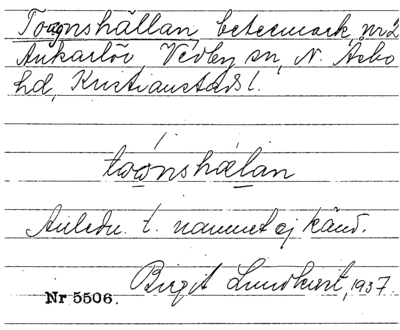 Toarnshällan, betesmark, nr 2
Ankarlöv, Vedby sn, N. Åsbo
hd, Kristianstads l.
toɷ́nshælan
Anledn. t. namnet ej känd.
Birgit Lundkvist, 1937.
Nr 5506.